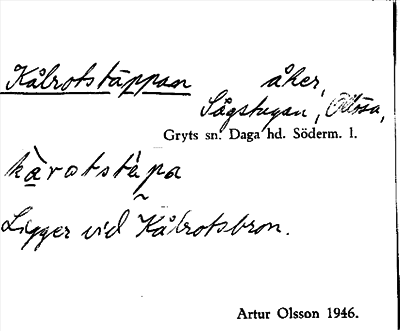 Kålrotstäppan åker,
Sågstugan, Ottosa,
Gryts sn. Daga hd. Söderm. l.
kàrotstẹ̀pa
Ligger vid Kålrotsbron.
Artur Olsson 1946.